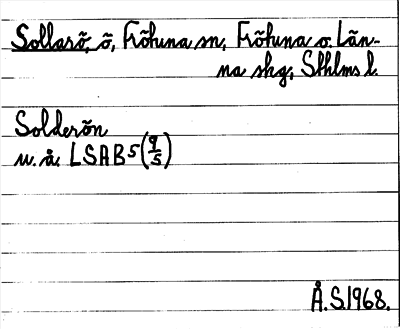 Sollarö, ö, Frötuna sn, Frötuna o. Län-
na skg, Sthlms l.
Solderön
u. å. LSAB 5 (9/5)
Å.S.1968.